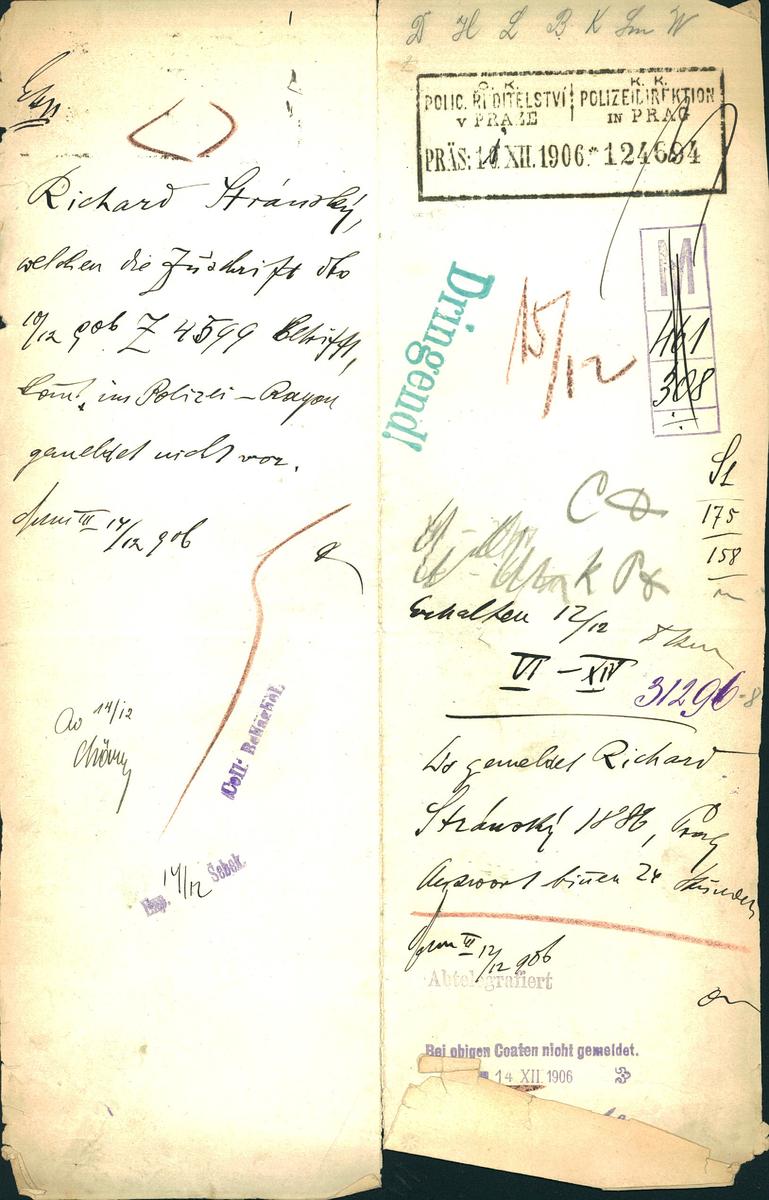 Richard Stránský,
welchen die Zuschrift dto
10/12 906 Z 4599 betrifft,
komt im Polizei-Rayon
gemeldet nicht vor.
III 14/12 906
14/12
Coll:
14/12 Šebek.
Exp.
D H L B K Sm W
C. K. K. K.
POLIC. ŘEDITELSTVÍ POLIZEIDIREKTION
V PRAZE IN PRAG
PRÄS: XII. 1906 * 124694
M
461
308
Dringend!
15/12
St
175
158
Erhalten 12/12
VI - XIV
31296-8
Wo gemeldet Richard
Stránský 1886, Prag
Antwort binen 24 Stunden
III 12/12 906
Abtelegrafiert
Bei obigen Coaten nicht gemeldet.
14 XII. 1906